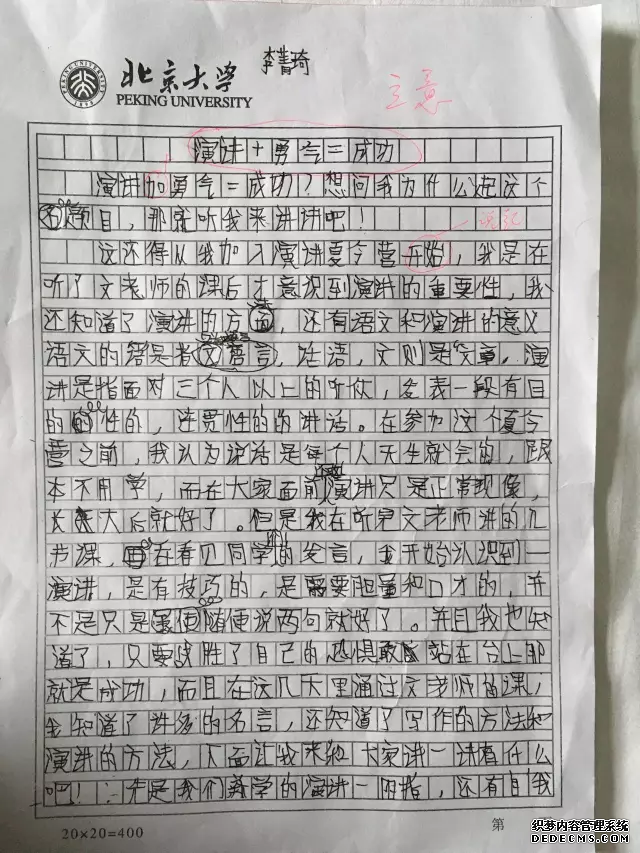 北京大学
PEKING UNIVERSITY
李菁琦
立意
演讲+勇气=成功
演讲加勇气=成功?想问我为什么起这个
名题目,那就听我来讲讲吧!
这还得从我加入演讲夏令营开始,我是在
听了文老师的课后才意识到演讲的重要性,我
还知道了演讲的方面,还有语文和演讲的意义
语文的答是指文言,法语,文则是文章,演
讲是指面对三个人以上的听众,发表一段有目
的的性的,连贯性的的讲话。在参加这个夏令
营之前,我认为说话是每个人天生就会的,跟
本不用学,而在大家面前演讲只是正常现像,
长大后就好了。但是我在听见文老师讲的几
节课,在看见同学们的发言,我开始认识到
演讲,是有技巧的,是需要胆量和口才的,并
不是只是随便说两句就好了。并且我也知
道了,只要战胜了自己的恐惧敢站在台上那
就是成功,而且在这几天里通过文老师的课,
我知道了许多的名言,还知道了写作的方法和
演讲的方法,下面让我来和大家讲一讲有什么
吧!先是我们学的演讲一,还有自我
20×20=400
第
织梦内容管理系统
DEDECMS.COM